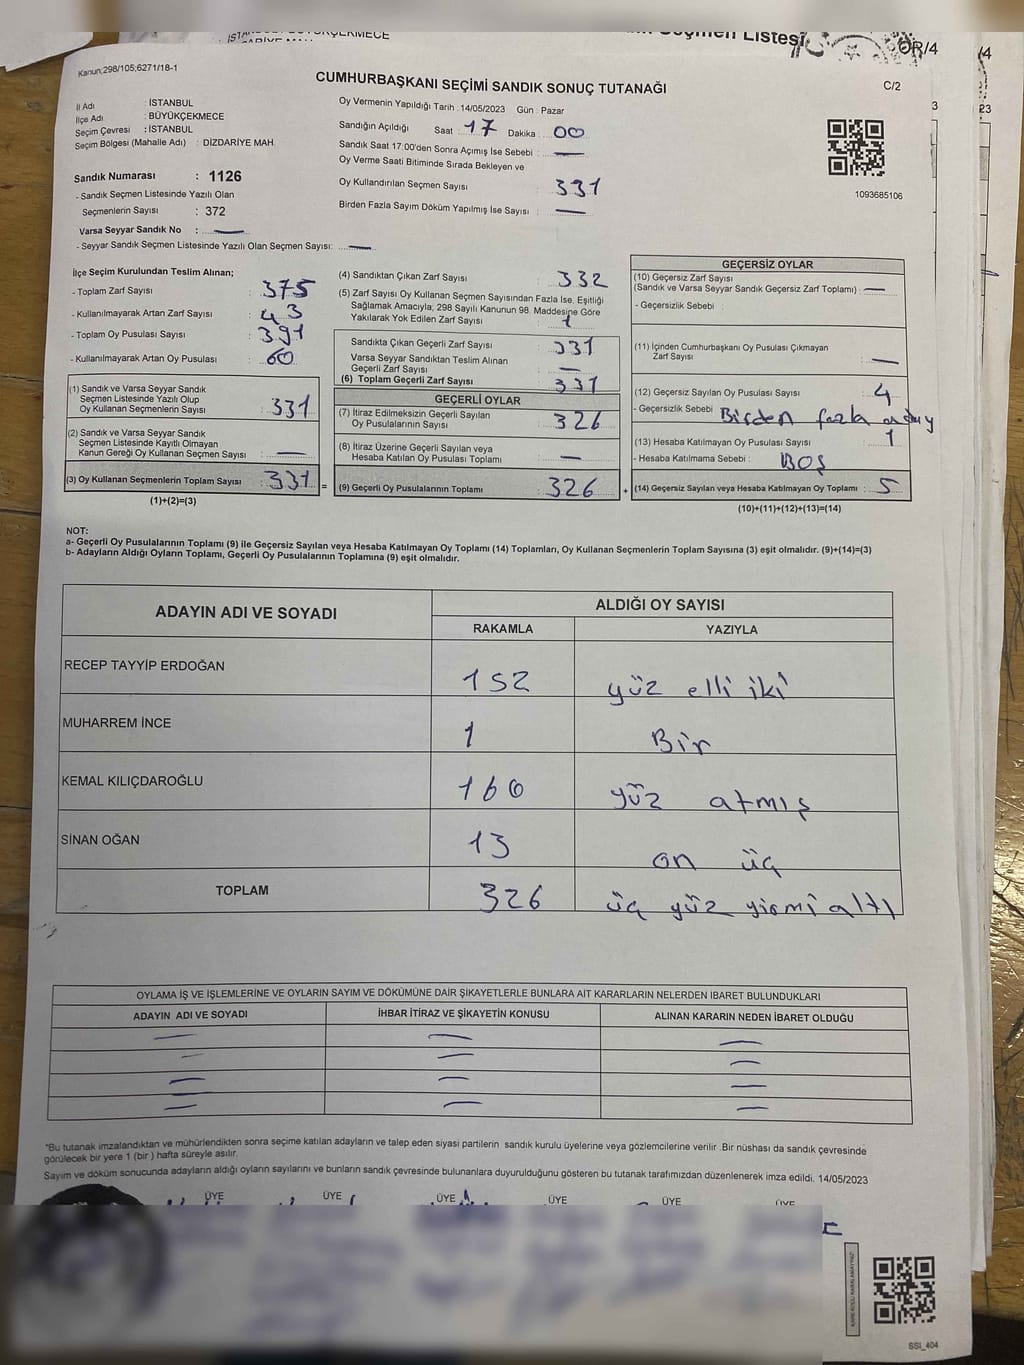 Seçmen Listesi
OR/4
Kanun;298/105;6271/18-1
CUMHURBAŞKANI SEÇİMİ SANDIK SONUÇ TUTANAĞI
C/2
İl Adı : İSTANBUL
İlçe Adı : BÜYÜKÇEKMECE
Seçim Çevresi : İSTANBUL
Seçim Bölgesi (Mahalle Adı) : DİZDARİYE MAH.
Oy Vermenin Yapıldığı Tarih : 14/05/2023 Gün : Pazar
Sandığın Açıldığı Saat : 17 Dakika : 00
Sandık Saat 17:00'den Sonra Açımış İse Sebebi : —
Oy Verme Saati Bitiminde Sırada Bekleyen ve
Oy Kullandırılan Seçmen Sayısı : 331
Birden Fazla Sayım Döküm Yapılmış İse Sayısı : —
1093685106
Sandık Numarası : 1126
- Sandık Seçmen Listesinde Yazılı Olan
Seçmenlerin Sayısı : 372
Varsa Seyyar Sandık No : —
- Seyyar Sandık Seçmen Listesinde Yazılı Olan Seçmen Sayısı: —
İlçe Seçim Kurulundan Teslim Alınan;
- Toplam Zarf Sayısı : 375
- Kullanılmayarak Artan Zarf Sayısı : 43
- Toplam Oy Pusulası Sayısı : 391
- Kullanılmayarak Artan Oy Pusulası : 60
(1) Sandık ve Varsa Seyyar Sandık
Seçmen Listesinde Yazılı Olup
Oy Kullanan Seçmenlerin Sayısı : 331
(2) Sandık ve Varsa Seyyar Sandık
Seçmen Listesinde Kayıtlı Olmayan
Kanun Gereği Oy Kullanan Seçmen Sayısı : —
(3) Oy Kullanan Seçmenlerin Toplam Sayısı : 331 =
(1)+(2)=(3)
(4) Sandıktan Çıkan Zarf Sayısı : 332
(5) Zarf Sayısı Oy Kullanan Seçmen Sayısından Fazla İse, Eşitliği
Sağlamak Amacıyla; 298 Sayılı Kanunun 98. Maddesine Göre
Yakılarak Yok Edilen Zarf Sayısı : 1
Sandıkta Çıkan Geçerli Zarf Sayısı : 331
Varsa Seyyar Sandıktan Teslim Alınan
Geçerli Zarf Sayısı : —
(6) Toplam Geçerli Zarf Sayısı : 331
GEÇERLİ OYLAR
(7) İtiraz Edilmeksizin Geçerli Sayılan
Oy Pusulalarının Sayısı : 326
(8) İtiraz Üzerine Geçerli Sayılan veya
Hesaba Katılan Oy Pusulası Toplamı : —
(9) Geçerli Oy Pusulalarının Toplamı : 326 +
GEÇERSİZ OYLAR
(10) Geçersiz Zarf Sayısı
(Sandık ve Varsa Seyyar Sandık Geçersiz Zarf Toplamı) : —
- Geçersizlik Sebebi :
(11) İçinden Cumhurbaşkanı Oy Pusulası Çıkmayan
Zarf Sayısı : —
(12) Geçersiz Sayılan Oy Pusulası Sayısı : 4
- Geçersizlik Sebebi : Birden fazla aday
(13) Hesaba Katılmayan Oy Pusulası Sayısı : 1
- Hesaba Katılmama Sebebi : BOŞ
(14) Geçersiz Sayılan veya Hesaba Katılmayan Oy Toplamı : 5
(10)+(11)+(12)+(13)=(14)
NOT:
a- Geçerli Oy Pusulalarının Toplamı (9) ile Geçersiz Sayılan veya Hesaba Katılmayan Oy Toplamı (14) Toplamları, Oy Kullanan Seçmenlerin Toplam Sayısına (3) eşit olmalıdır. (9)+(14)=(3)
b- Adayların Aldığı Oyların Toplamı, Geçerli Oy Pusulalarının Toplamına (9) eşit olmalıdır.
ADAYIN ADI VE SOYADI
ALDIĞI OY SAYISI
RAKAMLA YAZIYLA
RECEP TAYYİP ERDOĞAN 152 yüz elli iki
MUHARREM İNCE 1 Bir
KEMAL KILIÇDAROĞLU 160 yüz atmış
SİNAN OĞAN 13 on üç
TOPLAM 326 üç yüz yirmi altı
OYLAMA İŞ VE İŞLEMLERİNE VE OYLARIN SAYIM VE DÖKÜMÜNE DAİR ŞİKAYETLERLE BUNLARA AİT KARARLARIN NELERDEN İBARET BULUNDUKLARI
ADAYIN ADI VE SOYADI İHBAR İTİRAZ VE ŞİKAYETİN KONUSU ALINAN KARARIN NEDEN İBARET OLDUĞU
*Bu tutanak imzalandıktan ve mühürlendikten sonra seçime katılan adayların ve talep eden siyasi partilerin sandık kurulu üyelerine veya gözlemcilerine verilir .Bir nüshası da sandık çevresinde
görülecek bir yere 1 (bir ) hafta süreyle asılır.
Sayım ve döküm sonucunda adayların aldığı oyların sayılarını ve bunların sandık çevresinde bulunanlara duyurulduğunu gösteren bu tutanak tarafımızdan düzenlenerek imza edildi. 14/05/2023
ÜYE ÜYE ÜYE ÜYE ÜYE ÜYE
SSI_404